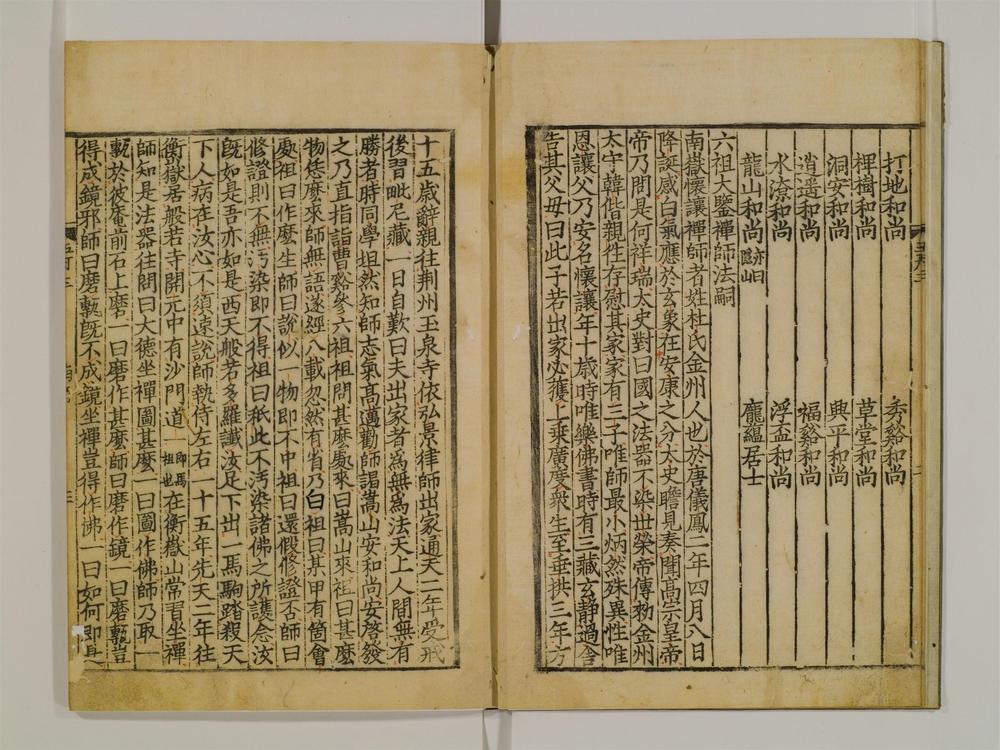 打地和尚 秀谿和尚
椑樹和尚 草堂和尚
洞安和尚 興平和尚
逍遥和尚 福谿和尚
水潦和尚 浮盃和尚
龍山和尚 龐蘊居士
六祖大鑒禪師法嗣
南嶽懷讓禪師者姓杜氏金州人也於唐儀鳳二年四月八日
降誕感白氣應於玄象在安康之分太史瞻見奏聞高宗皇帝
帝乃問是何祥瑞太史對曰國之法器不染世榮帝傳勑金州
太守韓偕親往存慰其家家有三子唯師最小炳然殊異性唯
恩讓父乃安名懷讓年十歳時唯樂佛書時有三藏玄靜過舍
告其父母曰此子若出家必獲上乗廣度衆生至垂拱三年方
十五歳辭親往荆州玉泉寺依弘景律師出家通天二年受戒
後習毗尼藏一日自歎曰夫出家者爲無爲法天上人間無有
勝者時同學坦然知師志氣高邁勸師謁嵩山安和尚安啓發
之乃直指詣曹谿叅六祖祖問甚麽處來曰嵩山來祖曰甚麽
物恁麽來師無語遂經八載忽然有省乃白祖曰某甲有箇會
處祖曰作麽生師曰說似一物即不中祖曰還假修證否師曰
修證則不無汚染即不得祖曰秖此不汚染諸佛之所護念汝
旣如是吾亦如是西天般若多羅讖汝足下出一馬駒踏殺天
下人病在汝心不須速說師執侍左右一十五年先天二年往
衡嶽居般若寺開元中有沙門道一即馬祖也在衡嶽山常習坐禪
師知是法器往問曰大德坐禪圖甚麽一曰圖作佛師乃取一
甎於彼庵前石上磨一曰磨作甚麽師曰磨作鏡一曰磨甎豈
得成鏡邪師曰磨甎旣不成鏡坐禪豈得作佛一曰如何即是